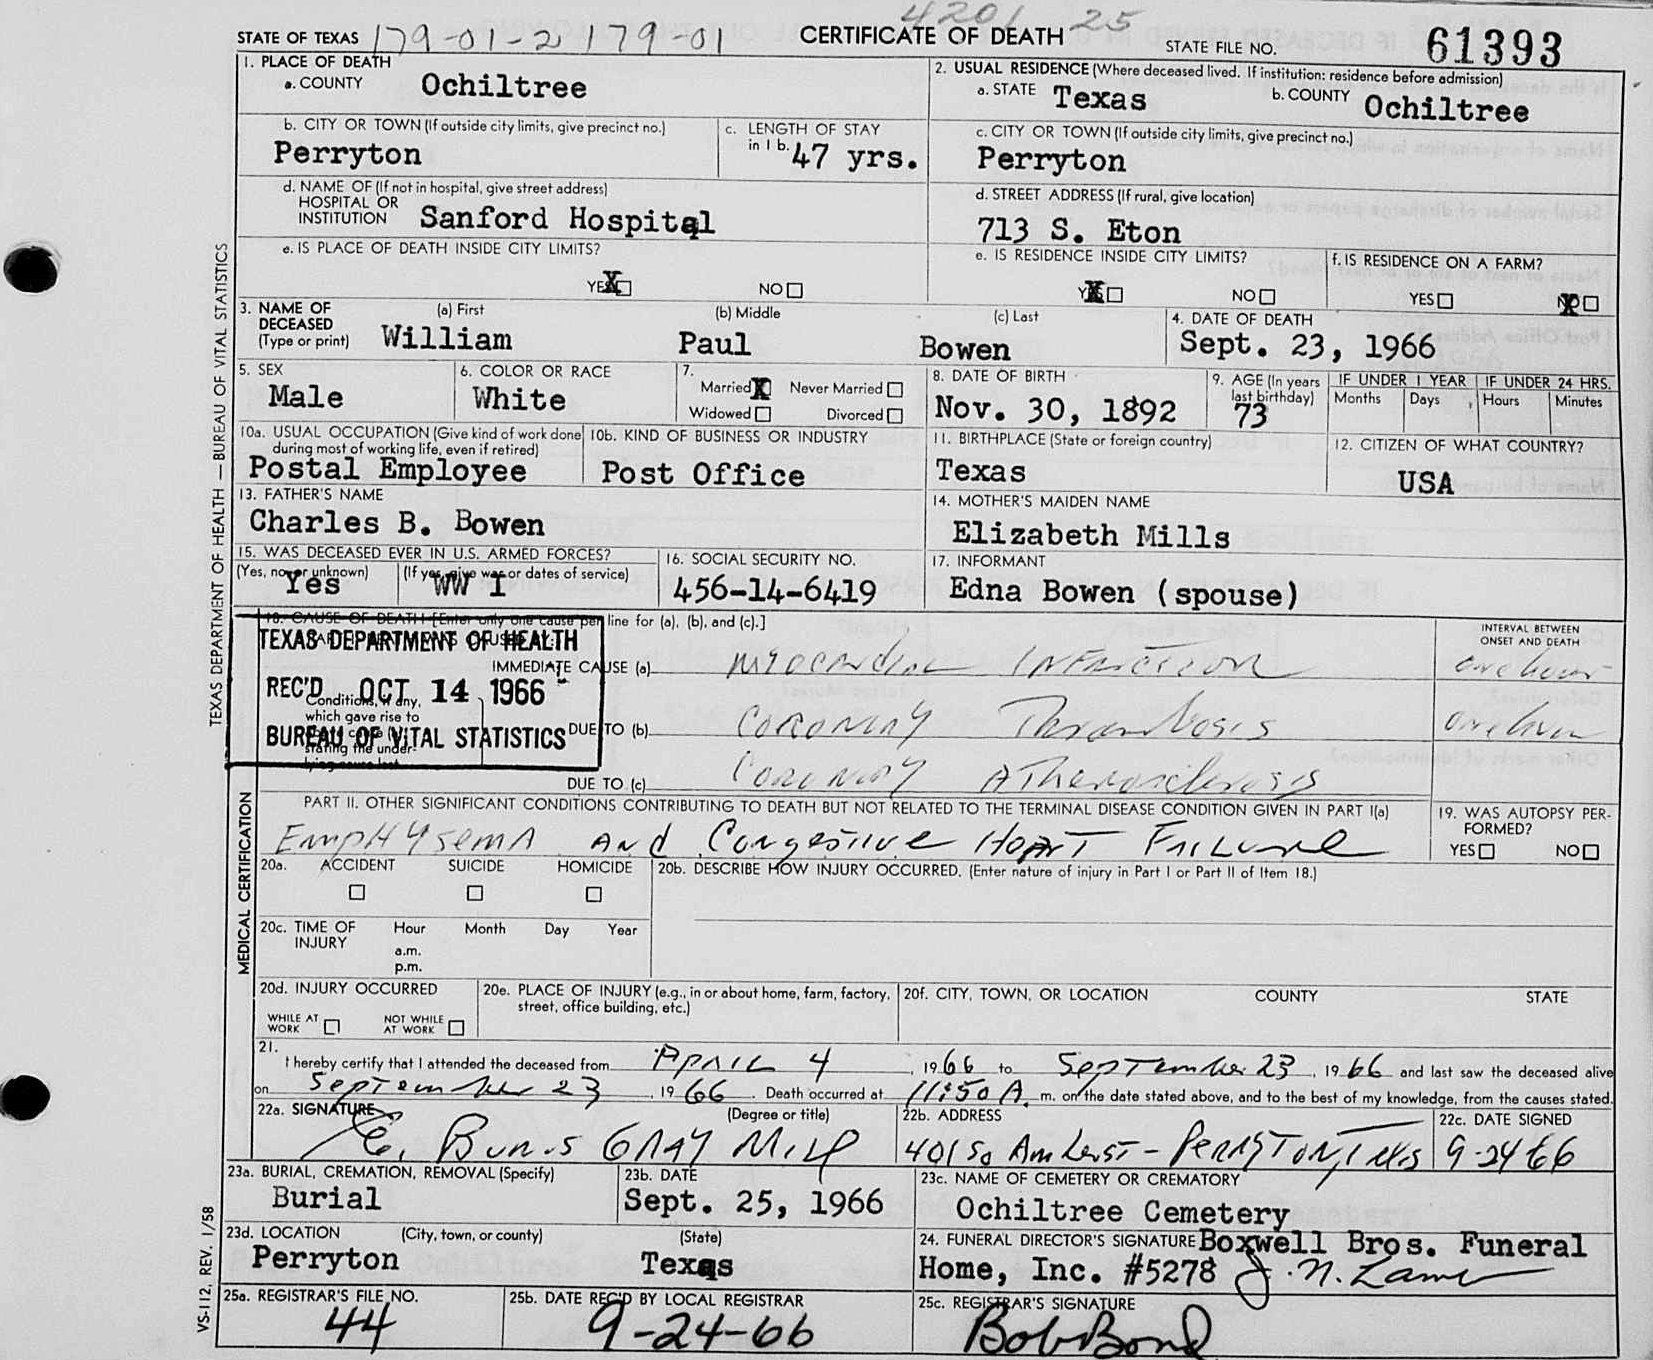 4201 25
STATE OF TEXAS 179-01-2 179-01 CERTIFICATE OF DEATH STATE FILE NO. 61393
1. PLACE OF DEATH
a. COUNTY Ochiltree
2. USUAL RESIDENCE (Where deceased lived. If institution: residence before admission)
a. STATE Texas b. COUNTY Ochiltree
b. CITY OR TOWN (If outside city limits, give precinct no.) Perryton
c. LENGTH OF STAY in 1 b. 47 yrs.
c. CITY OR TOWN (If outside city limits, give precinct no.) Perryton
d. NAME OF (If not in hospital, give street address)
HOSPITAL OR
INSTITUTION Sanford Hospital
d. STREET ADDRESS (If rural, give location)
713 S. Eton
e. IS PLACE OF DEATH INSIDE CITY LIMITS?
YES X NO
e. IS RESIDENCE INSIDE CITY LIMITS?
YES X NO
f. IS RESIDENCE ON A FARM?
YES NO X
3. NAME OF DECEASED (Type or print)
(a) First William (b) Middle Paul (c) Last Bowen
4. DATE OF DEATH
Sept. 23, 1966
5. SEX Male
6. COLOR OR RACE White
7. Married X Never Married
Widowed Divorced
8. DATE OF BIRTH
Nov. 30, 1892
9. AGE (In years last birthday) 73
IF UNDER 1 YEAR IF UNDER 24 HRS.
Months Days Hours Minutes
10a. USUAL OCCUPATION (Give kind of work done during most of working life, even if retired)
Postal Employee
10b. KIND OF BUSINESS OR INDUSTRY
Post Office
11. BIRTHPLACE (State or foreign country)
Texas
12. CITIZEN OF WHAT COUNTRY?
USA
13. FATHER'S NAME
Charles B. Bowen
14. MOTHER'S MAIDEN NAME
Elizabeth Mills
15. WAS DECEASED EVER IN U.S. ARMED FORCES?
(Yes, no, or unknown) Yes (If yes, give war or dates of service) WW I
16. SOCIAL SECURITY NO.
456-14-6419
17. INFORMANT
Edna Bowen (spouse)
18. CAUSE OF DEATH [Enter only one cause per line for (a), (b), and (c).]
INTERVAL BETWEEN
ONSET AND DEATH
TEXAS DEPARTMENT OF HEALTH
REC'D OCT 14 1966
BUREAU OF VITAL STATISTICS
IMMEDIATE CAUSE (a) Myocardial Infarction one hour
Conditions, if any,
which gave rise to
stating the under-
lying cause last.
DUE TO (b) Coronary Thrombosis one hour
DUE TO (c) Coronary Atherosclerosis
PART II. OTHER SIGNIFICANT CONDITIONS CONTRIBUTING TO DEATH BUT NOT RELATED TO THE TERMINAL DISEASE CONDITION GIVEN IN PART I(a)
Emphysema and Congestive Heart Failure
19. WAS AUTOPSY PERFORMED?
YES NO
20a. ACCIDENT SUICIDE HOMICIDE
20b. DESCRIBE HOW INJURY OCCURRED. (Enter nature of injury in Part I or Part II of Item 18.)
20c. TIME OF INJURY Hour Month Day Year
a.m.
p.m.
20d. INJURY OCCURRED
WHILE AT WORK NOT WHILE AT WORK
20e. PLACE OF INJURY (e.g., in or about home, farm, factory, street, office building, etc.)
20f. CITY, TOWN, OR LOCATION COUNTY STATE
21.
I hereby certify that I attended the deceased from April 4, 1966 to September 23, 1966 and last saw the deceased alive
on September 23 1966. Death occurred at 11:50 A. m. on the date stated above, and to the best of my knowledge, from the causes stated.
22a. SIGNATURE (Degree or title) Gray
22b. ADDRESS
401 So Amherst - Perryton, Texas
22c. DATE SIGNED
9-24-66
23a. BURIAL, CREMATION, REMOVAL (Specify)
Burial
23b. DATE
Sept. 25, 1966
23c. NAME OF CEMETERY OR CREMATORY
Ochiltree Cemetery
23d. LOCATION (City, town, or county) (State)
Perryton Texas
24. FUNERAL DIRECTOR'S SIGNATURE Boxwell Bros. Funeral
Home, Inc. #5278 J. N.
25a. REGISTRAR'S FILE NO.
44
25b. DATE REC'D BY LOCAL REGISTRAR
9-24-66
25c. REGISTRAR'S SIGNATURE
Bob Bond
TEXAS DEPARTMENT OF HEALTH — BUREAU OF VITAL STATISTICS
MEDICAL CERTIFICATION
VS-112, REV. 1/58